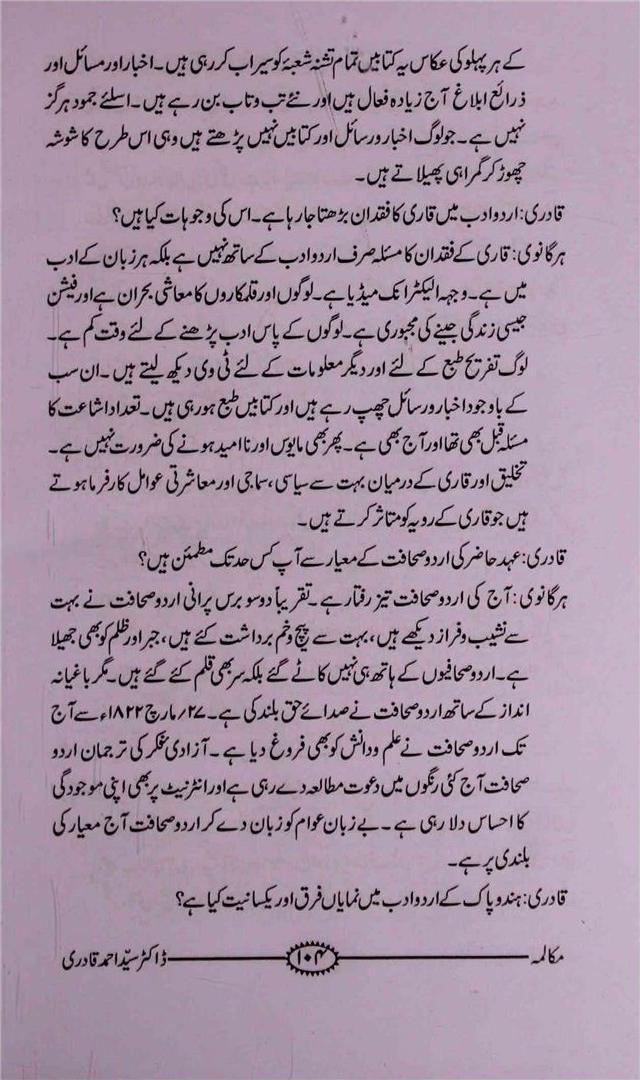 کے ہر پہلو کی عکاس یہ کتابیں تمام تشنہ شعبۂ کو سیراب کر رہی ہیں۔ اخبار اور مسائل اور
ذرائع ابلاغ آج زیادہ فعال ہیں اور نئے تب و تاب بن رہے ہیں۔ اسلئے جمود ہرگز
نہیں ہے۔ جو لوگ اخبار و رسائل اور کتابیں نہیں پڑھتے ہیں وہی اس طرح کا شوشہ
چھوڑ کر گمراہی پھیلاتے ہیں۔
قادری: اردو ادب میں قاری کا فقدان بڑھتا جا رہا ہے۔ اس کی وجوہات کیا ہیں؟
ہرگانوی: قاری کے فقدان کا مسئلہ صرف اردو ادب کے ساتھ نہیں ہے بلکہ ہر زبان کے ادب
میں ہے۔ وجہہ الیکٹرانک میڈیا ہے۔ لوگوں اور قلمکاروں کا معاشی بحران ہے اور فیشن
جیسی زندگی جینے کی مجبوری ہے۔ لوگوں کے پاس ادب پڑھنے کے لئے وقت کم ہے۔
لوگ تفریح طبع کے لئے اور دیگر معلومات کے لئے ٹی وی دیکھ لیتے ہیں۔ ان سب
کے باوجود اخبار و رسائل چھپ رہے ہیں اور کتابیں طبع ہو رہی ہیں۔ تعداد اشاعت کا
مسئلہ قبل بھی تھا اور آج بھی ہے۔ پھر بھی مایوس اور ناامید ہونے کی ضرورت نہیں ہے۔
تخلیق اور قاری کے درمیان بہت سے سیاسی، سماجی اور معاشرتی عوامل کارفرما ہوتے
ہیں جو قاری کے رویہ کو متاثر کرتے ہیں۔
قادری: عہد حاضر کی اردو صحافت کے معیار سے آپ کس حد تک مطمئن ہیں؟
ہرگانوی: آج کی اردو صحافت تیز رفتار ہے۔ تقریباً دو سو برس پرانی اردو صحافت نے بہت
سے نشیب و فراز دیکھے ہیں، بہت سے پیچ و خم برداشت کئے ہیں، جبر اور ظلم کو بھی جھیلا
ہے۔ اردو صحافیوں کے ہاتھ ہی نہیں کاٹے گئے بلکہ سر بھی قلم کئے گئے ہیں۔ مگر باغیانہ
انداز کے ساتھ اردو صحافت نے صدائے حق بلند کی ہے۔ ۲۷/ مارچ ۱۸۲۲ء سے آج
تک اردو صحافت نے علم و دانش کو بھی فروغ دیا ہے۔ آزادی فکر کی ترجمان اردو
صحافت آج کئی رنگوں میں دعوت مطالعہ دے رہی ہے اور انٹرنیٹ پر بھی اپنی موجودگی
کا احساس دلا رہی ہے۔ بے زبان عوام کو زبان دے کر اردو صحافت آج معیار کی
بلندی پر ہے۔
قادری: ہند و پاک کے اردو ادب میں نمایاں فرق اور یکسانیت کیا ہے؟
مکالمہ ۱۰۴ ڈاکٹر سیّد احمد قادری